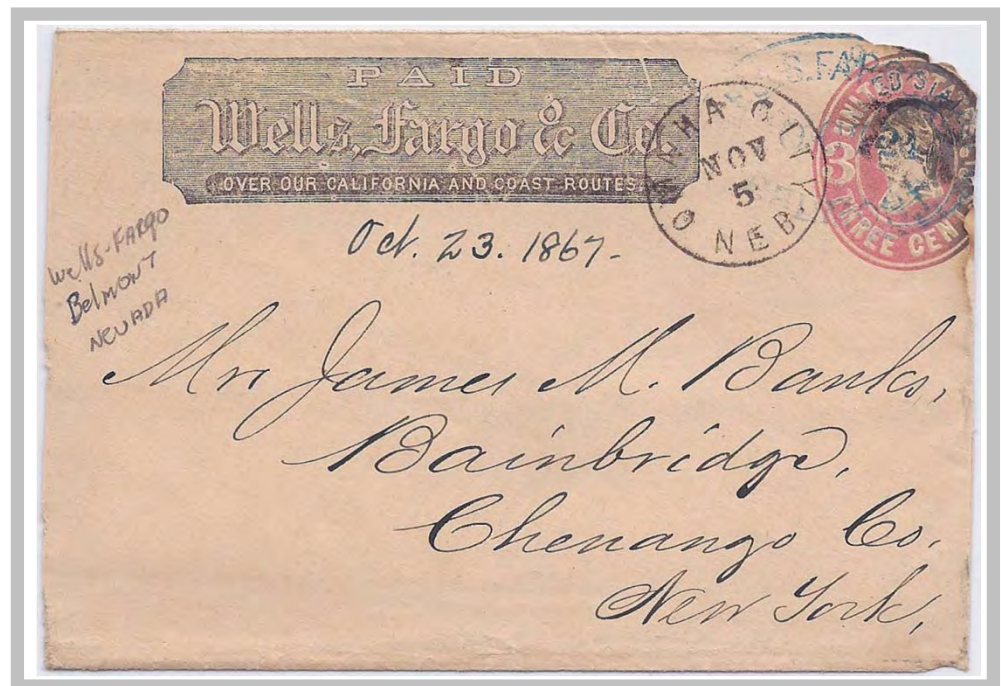 PAID
Wells, Fargo & Co.
OVER OUR CALIFORNIA AND COAST ROUTES.
S. FARGO
OMAHA CITY
NOV
5
NEB
UNITED STATES
3
THREE CEN
Oct. 23. 1867.
Wells-Fargo
Belmont
Nevada
Mrs James M. Banks,
Bainbridge,
Chenango Co.
New York,